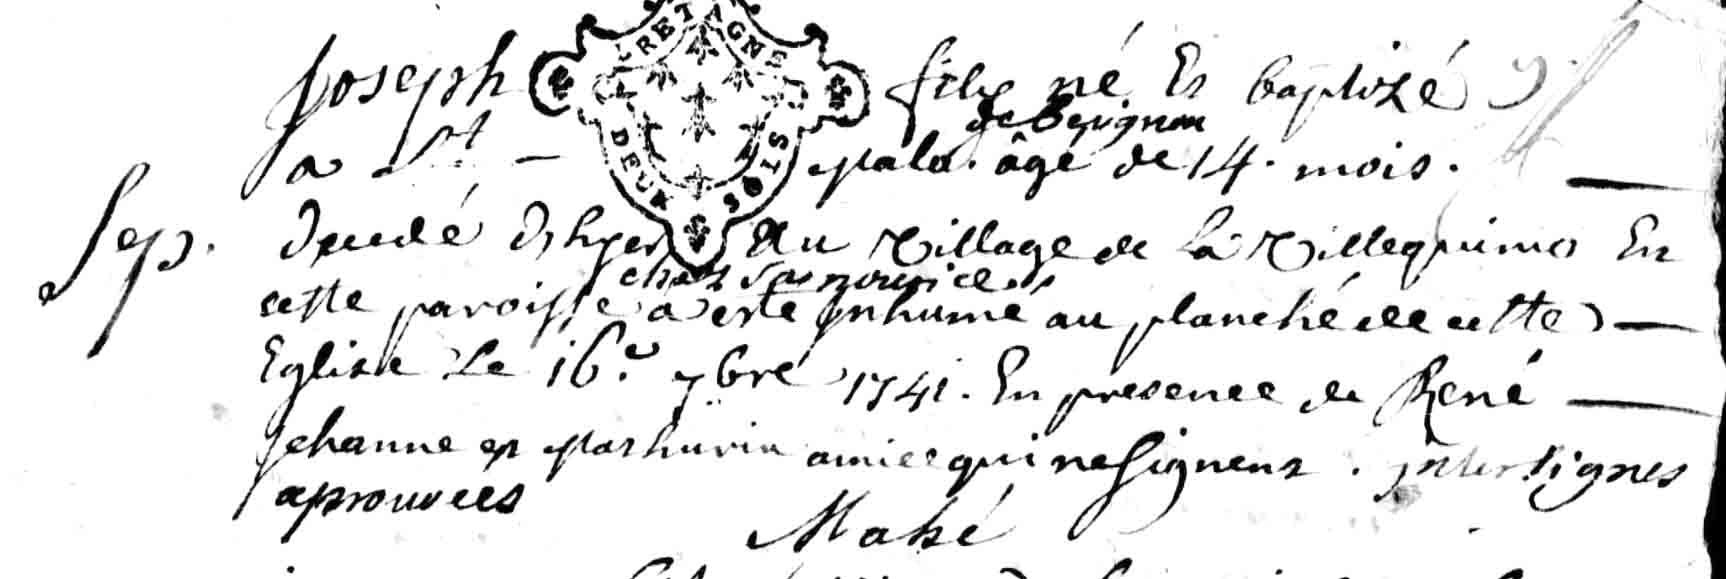 BRETAGNE
DEUX SOLS
Joseph fils né Et baptizé
de Beignon
a St - Malo. âgé de 14. mois.
Sep. decedé d'hyer au Village de La Villequino En
chez sa nourice
cette paroisse a esté Inhumé au planché de cette
Eglise Le 16.e 7bre 1741. En presence de René
Jehanne et Mathurin amice qui ne signent. Interlignes
aprouvees
Mahé